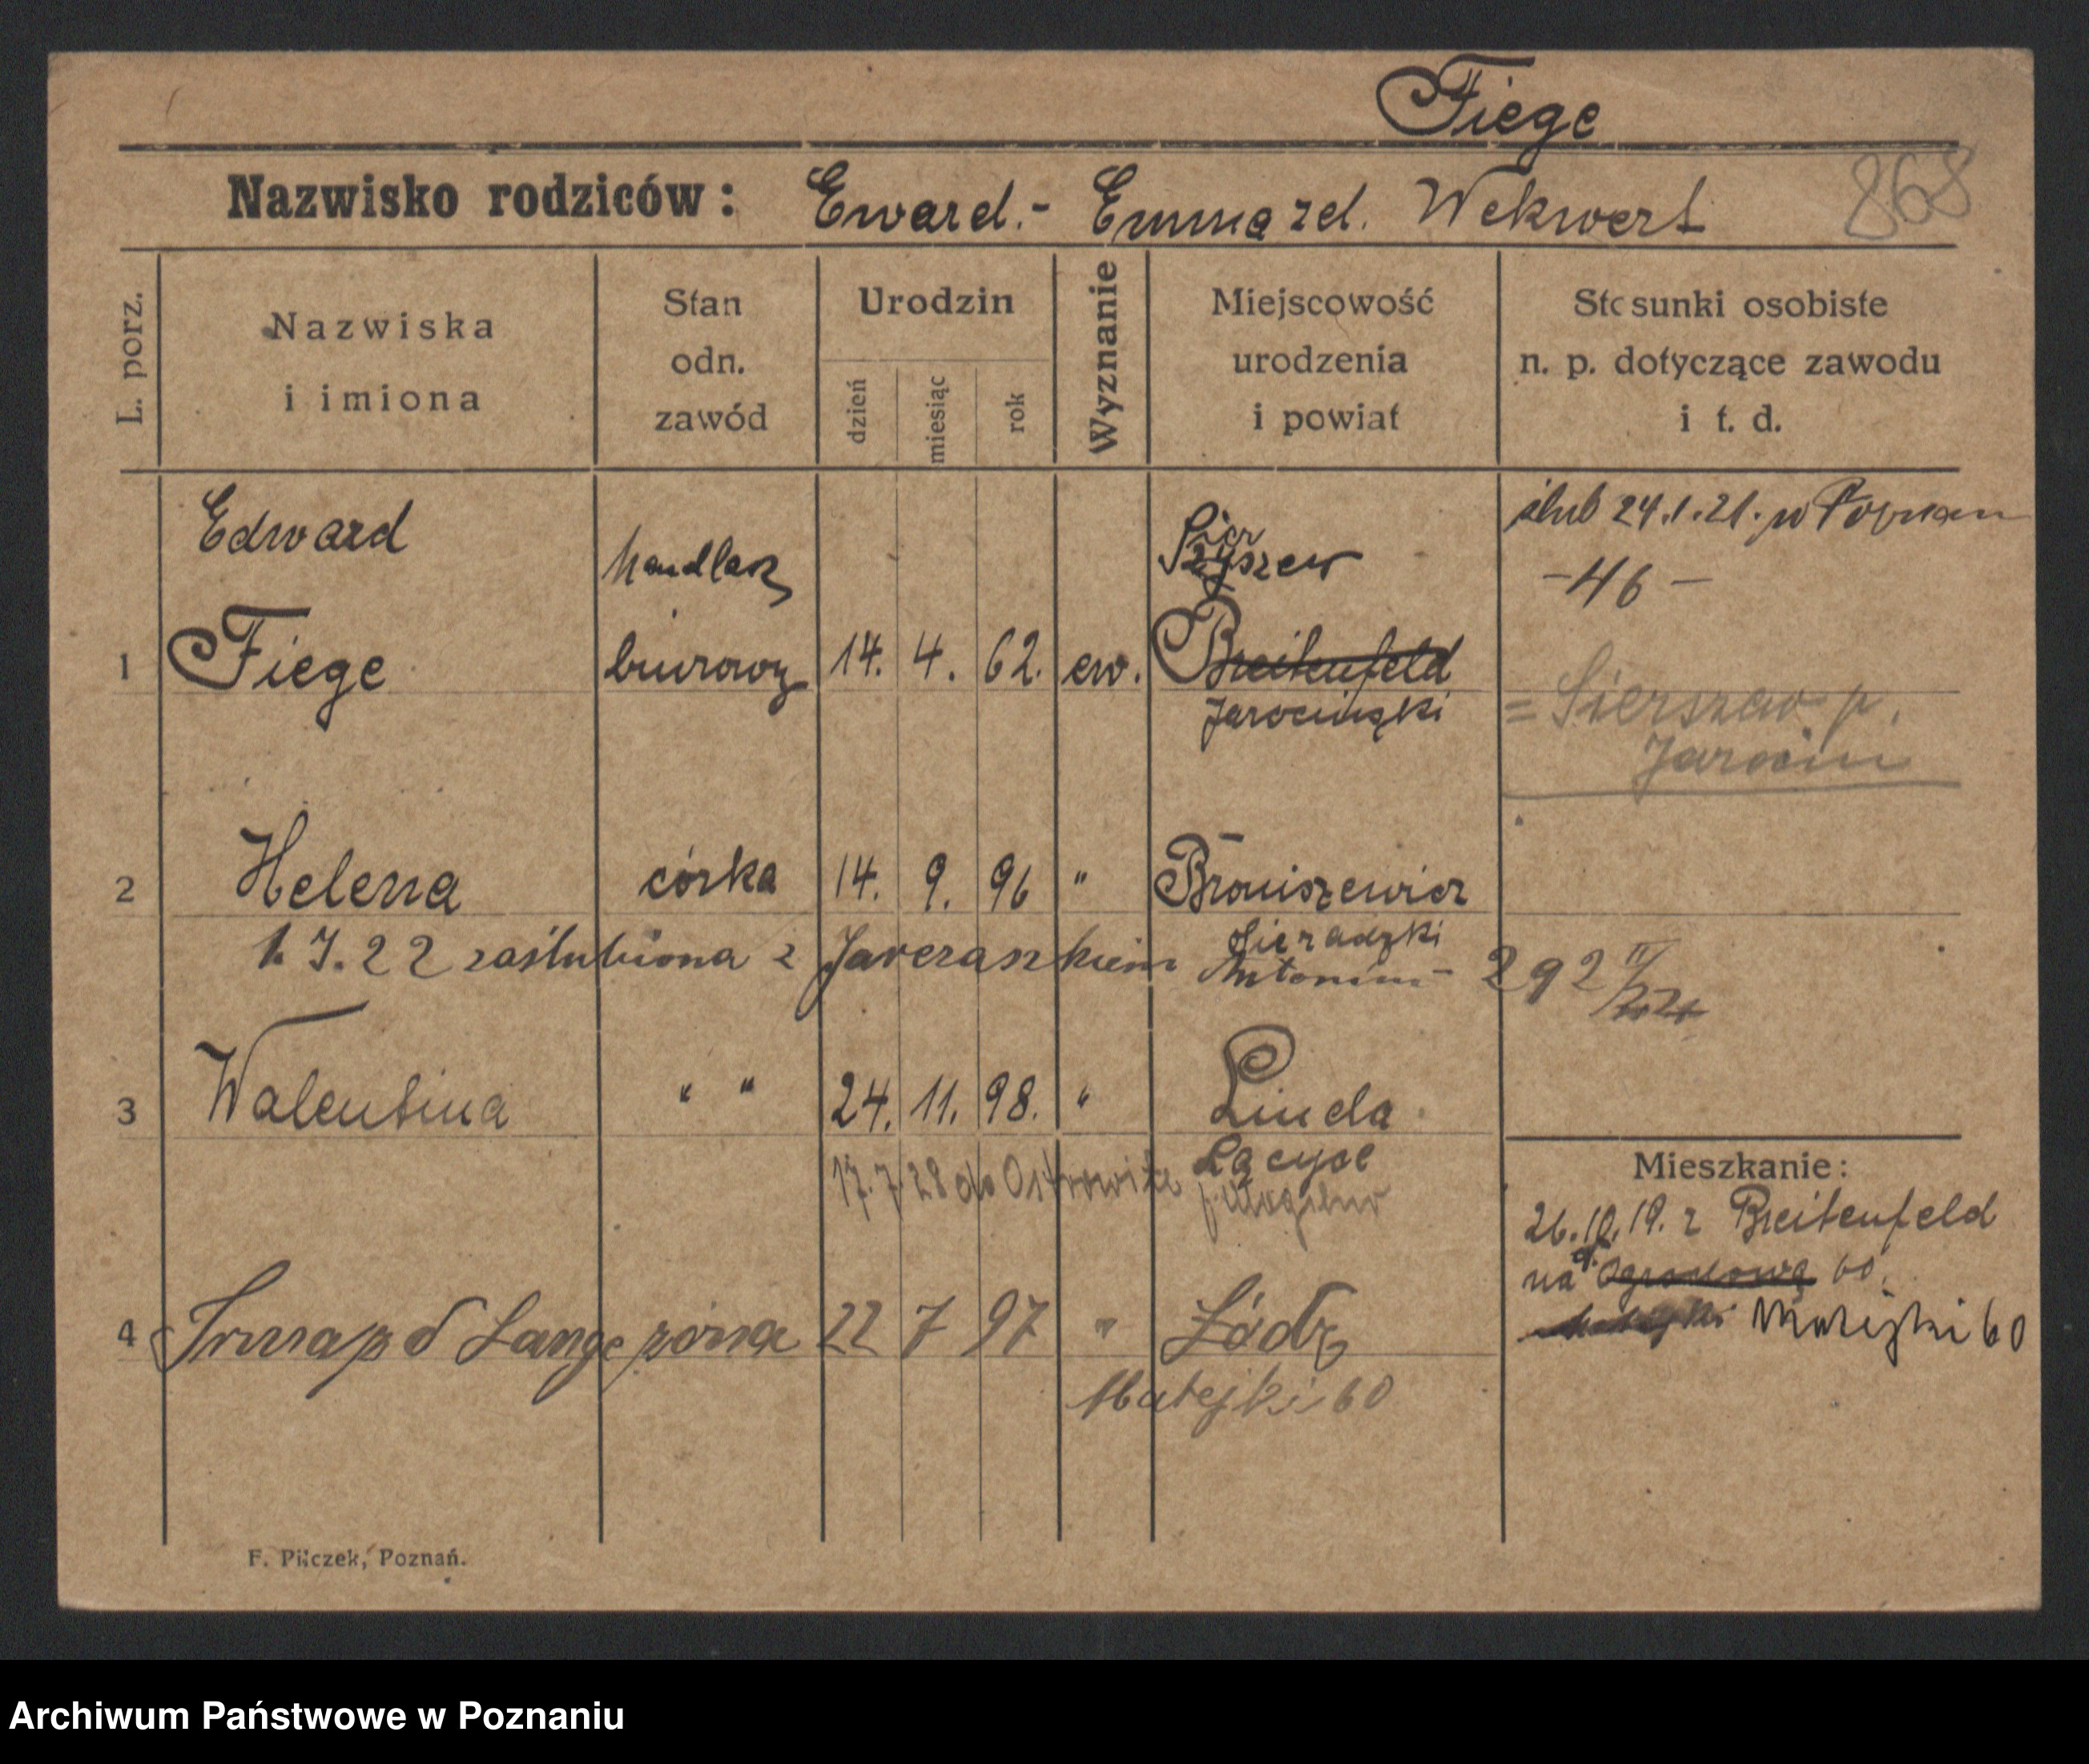 Fiege
Nazwisko rodziców: Eward.- Emma zd. Wekwert
868
L. porz.
Nazwiska
i imiona
Stan
odn.
zawód
Urodzin
dzień
miesiąc
rok
Wyznanie
Miejscowość
urodzenia
i powiat
Stosunki osobiste
n. p. dotyczące zawodu
i t. d.
Edward
handlarz
ślub 24.1.21. w Poznan
-46-
1 Fiege biurowy 14. 4. 62. ew. Breitenfeld
Jarocinski
= Sierszew p.
Jarocin
2 Helena córka 14. 9. 96 " Broniszewicz
Sieradzki
zaślubiona z Antonim - 292
3 Walentina " " 24. 11. 98. " Linda
17. 7. 28 do Ostrowite
p. Mogilno
Mieszkanie:
26.10.19. z Breitenfeld
na Ogrodową 60.
Matejki 60
4 Lange żona 22 7 97 " Łódź
Matejki 60
F. Pilczek, Poznań.
Archiwum Państwowe w Poznaniu